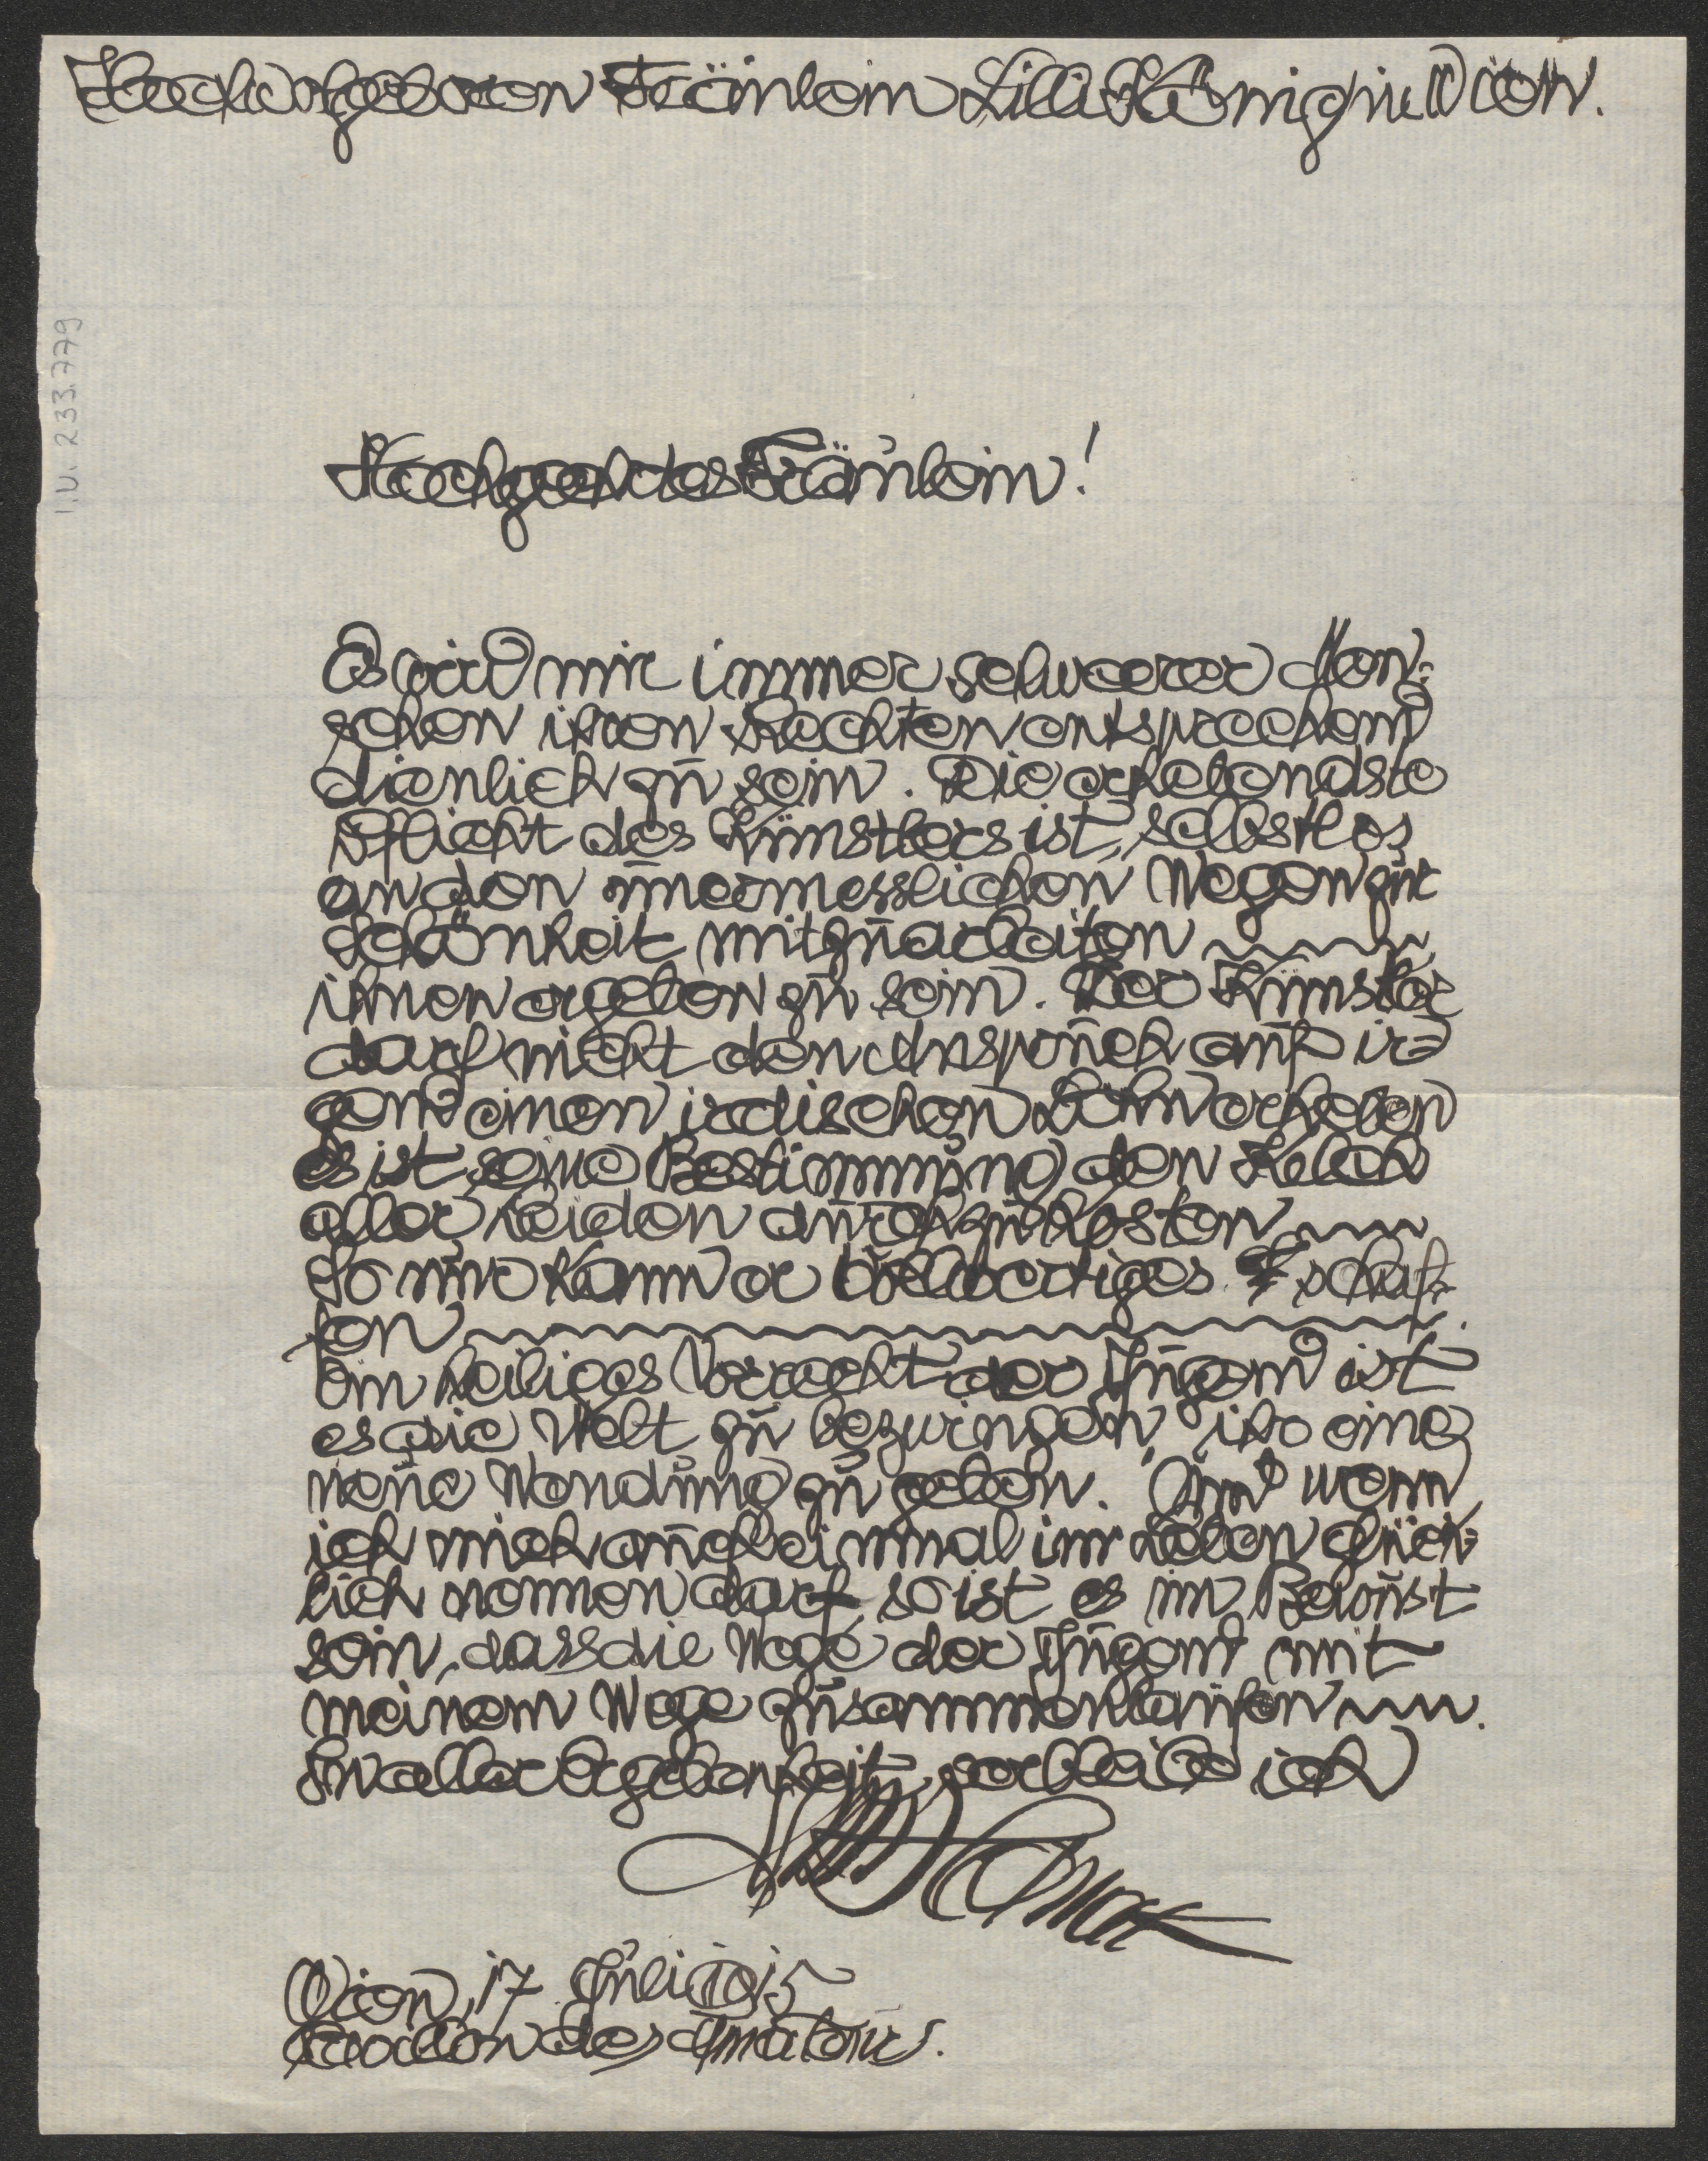 Hochwolgeboren Fräulein Lilli König in Wien.
I.N. 233.779
Hochgeehrtes Fräulein!
Es wird mir immer schwerer Men=
schen ihren Rechten entsprechend
dienlich zu sein. Die erhebendste
Pflicht des Künstlers ist, selbstlos
an den unermesslichen Wegen zur
Schönheit mitzuarbeiten
ihnen ergeben zu sein. Der Künstler
darf nicht den Anspruch auf ir=
gend einen irdischen Lohn erheben
es ist seine Bestimmung den Kelch
aller Leiden durchzukosten
So nur kann er vollwertiges schaf=
fen.
Ein heiliges Vorrecht der Jugend ist
es die Welt zu bezwingen ihr eine
neue Wendung zu geben. Und wenn
ich mich auch einmal im Leben glück=
lich nennen darf, so ist es im Bewußt
sein, dass die Wege der Jugend mit
meinem Wege zusammenlaufen.
In aller Ergebenheit, verbleibe ich
Wien, 17 Juli 1915
Pavillon des Amateurs.